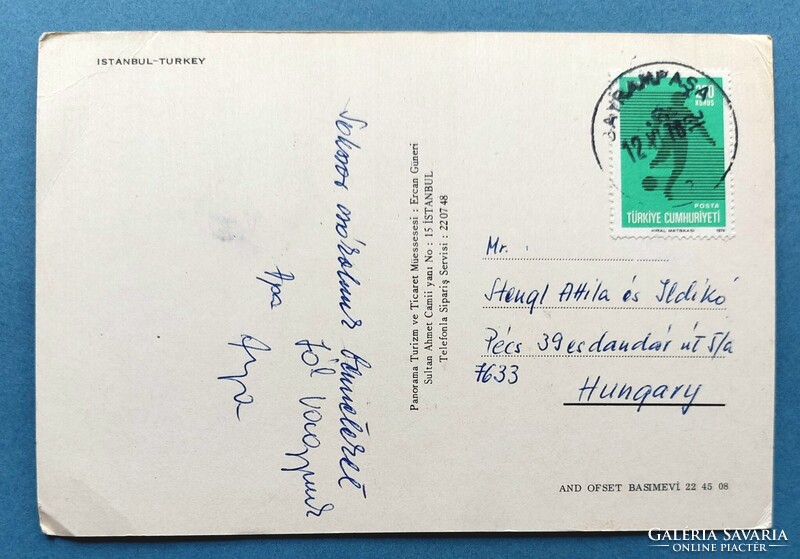 ISTANBUL-TURKEY
BAYRAMPAŞA
12
KURUŞ
POSTA
TÜRKİYE CUMHURİYETİ
Sokszor csókolunk benneteket
Jól vagyunk
Apa
Anya
Panorama Turizm ve Ticaret Müessesesi : Ercan Güneri
Sultan Ahmet Camii yanı No : 15 İSTANBUL
Telefonla Sipariş Servisi : 22 07 48
Mr.
Stengl Attila és Ildikó
Pécs 39 es dandár út 5/a
7633
Hungary
AND OFSET BASIMEVİ 22 45 08
GALÉRIA SAVARIA
ONLINE PIACTÉR